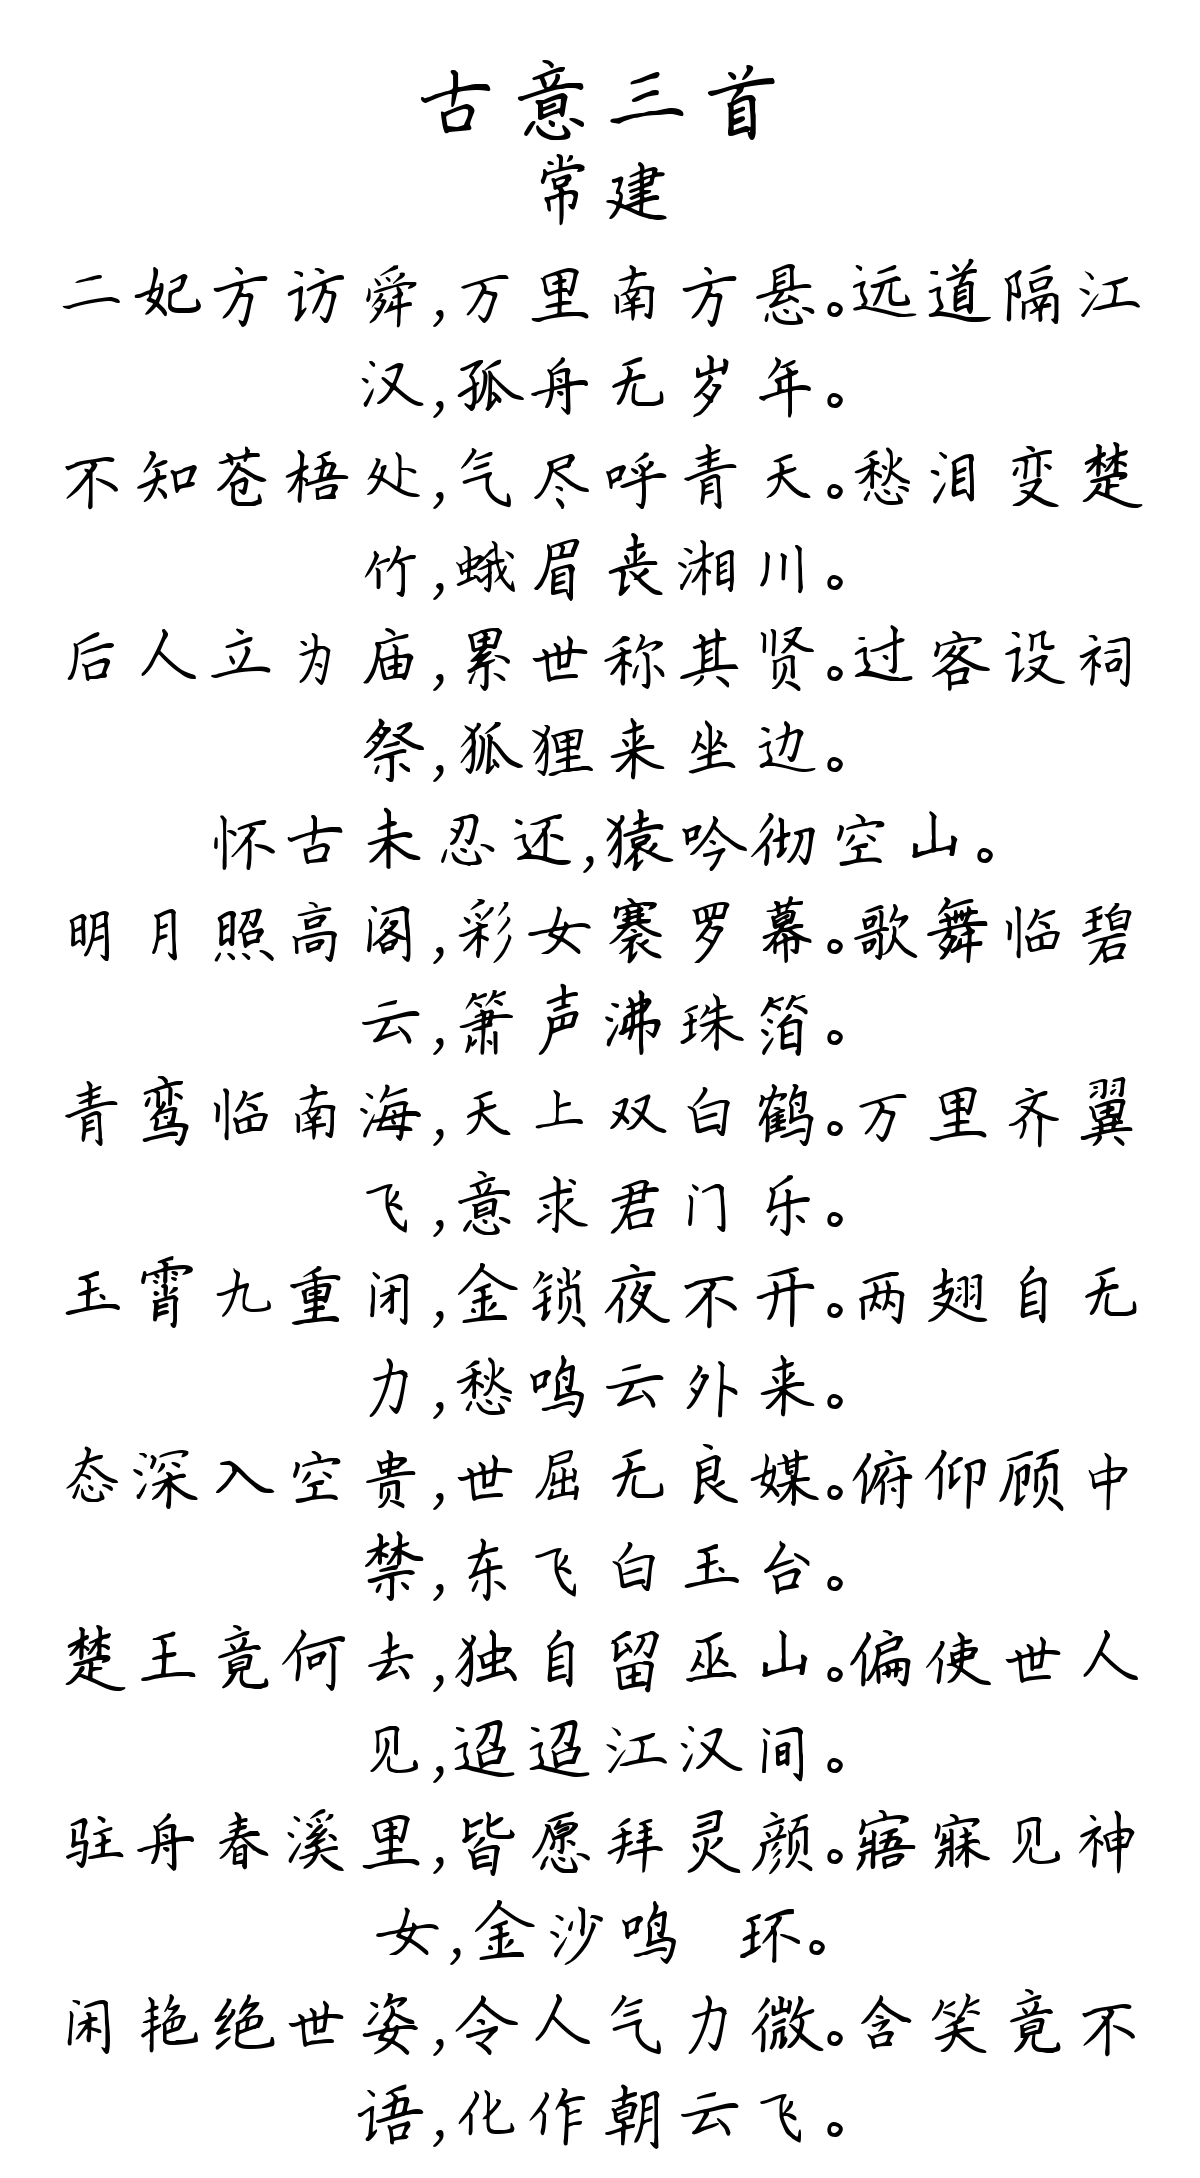 古意三首
常建
二妃方访舜,万里南方悬。远道隔江
汉,孤舟无岁年。
不知苍梧处,气尽呼青天。愁泪变楚
竹,蛾眉丧湘川。
后人立为庙,累世称其贤。过客设祠
祭,狐狸来坐边。
怀古未忍还,猿吟彻空山。
明月照高阁,彩女褰罗幕。歌舞临碧
云,箫声沸珠箔。
青鸾临南海,天上双白鹤。万里齐翼
飞,意求君门乐。
玉霄九重闭,金锁夜不开。两翅自无
力,愁鸣云外来。
态深入空贵,世屈无良媒。俯仰顾中
禁,东飞白玉台。
楚王竟何去,独自留巫山。偏使世人
见,迢迢江汉间。
驻舟春溪里,皆愿拜灵颜。寤寐见神
女,金沙鸣 环。
闲艳绝世姿,令人气力微。含笑竟不
语,化作朝云飞。